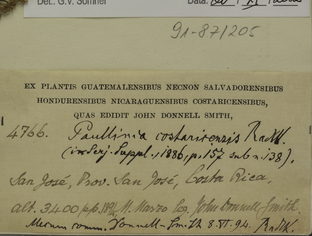 Det.: G.V. Somner
Data:
91-87/205
EX PLANTIS GUATEMALENSIBUS NECNON SALVADORENSIBUS
HONDURENSIBUS NICARAGUENSIBUS COSTARICENSIBUS,
QUAS EDIDIT JOHN DONNELL SMITH,
4766. Paullinia costaricensis Radlk.
(in Serj. Suppl., 1886, p. 157 sub n. 138).
San José, Prov. San José, Costa Rica
alt. 3400 Marzo John Donnell Smith.
comm. Donnell-Smith 8.VI.94. Radlk.